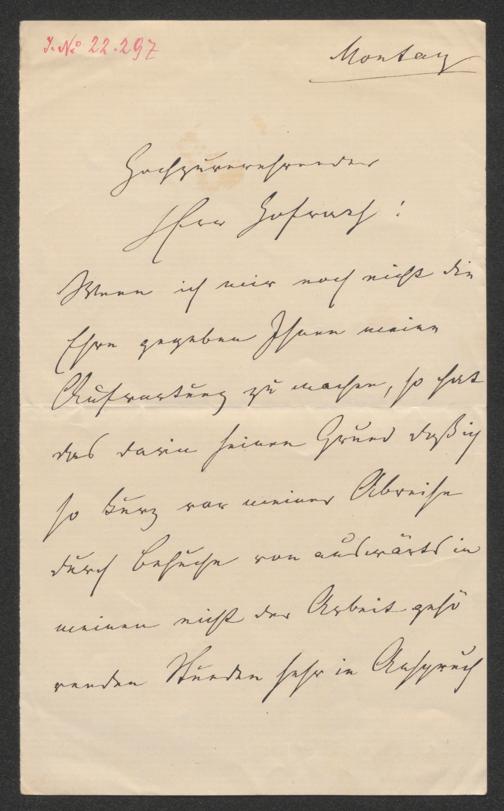 J. No 22.297
Montag
Hochzuverehrender
Herr Hofrath!
Wenn ich mir noch nicht die
Ehre gegeben Ihnen meine
Aufwartung zu machen, so hat
das darin seinen Grund daß ich
so kurz vor meiner Abreise
durch Besuche von auswärts in
meinen nicht der Arbeit gehö
renden Stunden sehr in Anspruch